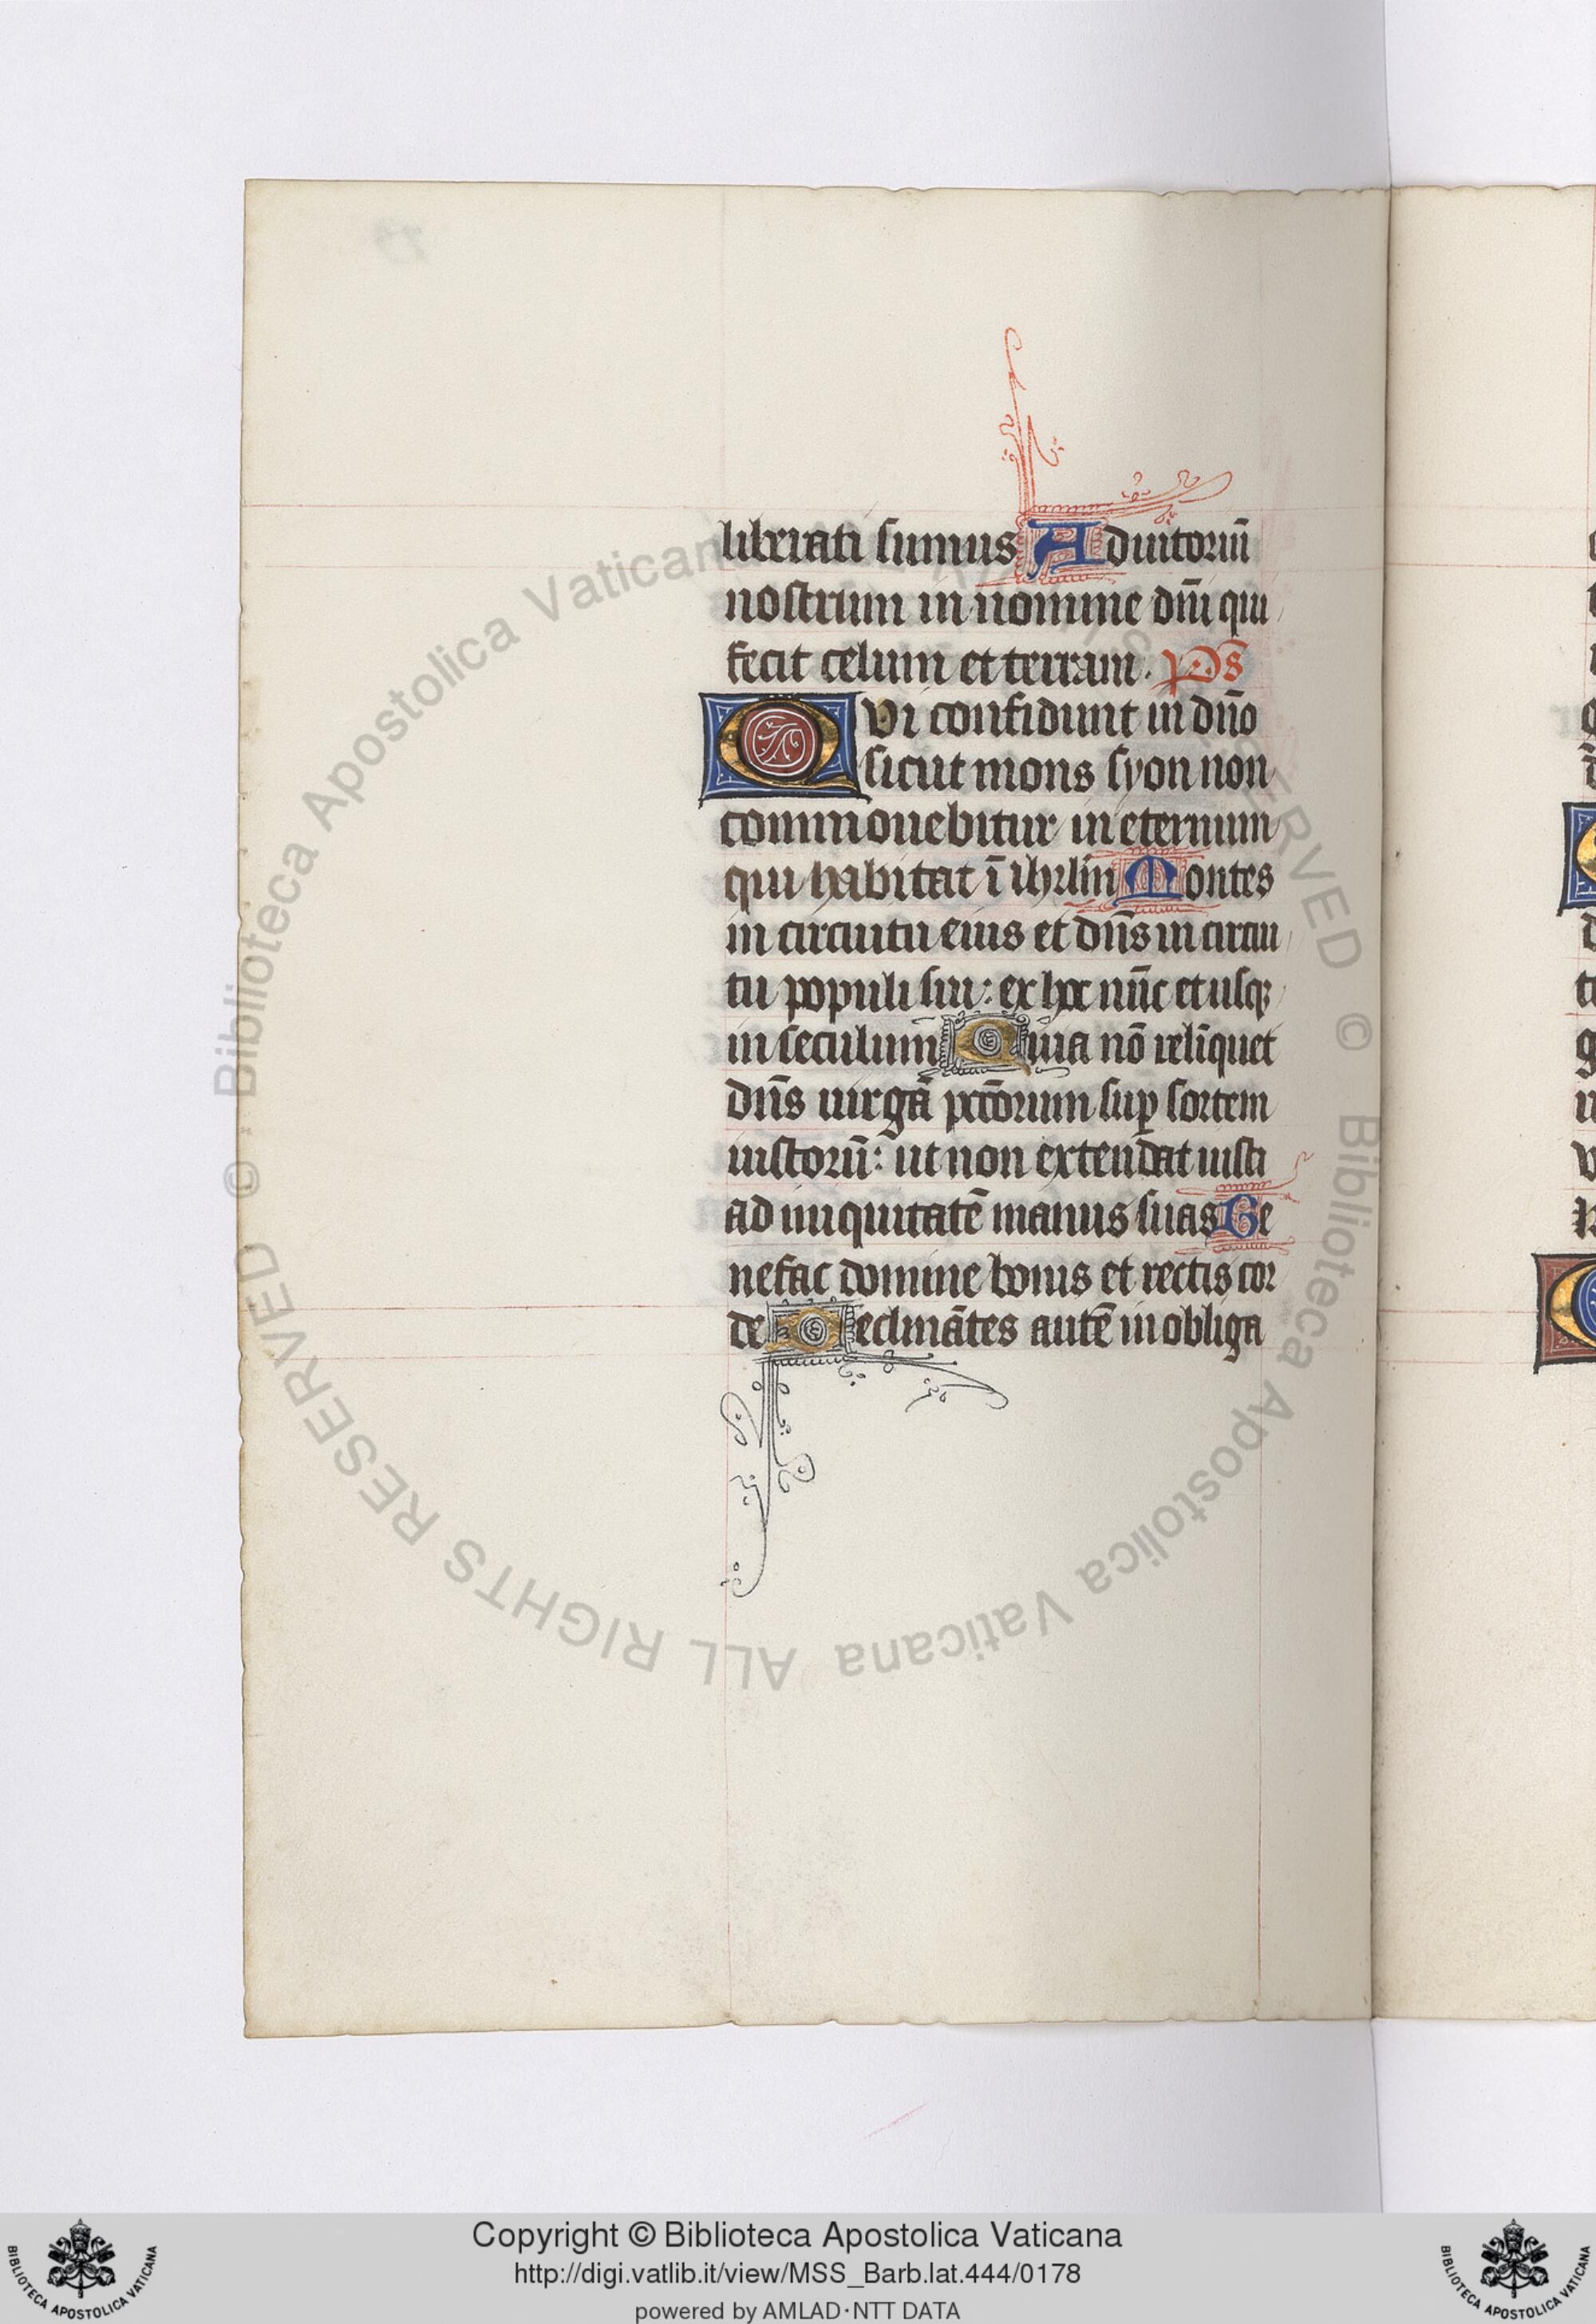 liberati sumus Adiutoriū
nostrum in nomine dn̄i qui
fecit celum et terram. Ps̄
QVi confidunt in dn̄o
sicut mons syon non
commouebitur in eternum
qui habitat ī ihrl̄m Montes
in circuitu eius et dn̄s in circui
tu populi sui: ex hoc nūc et usqꝫ
in seculum Quia nō relīquet
dn̄s uirgā pc̄corum sup̱ sortem
iustorū: ut non extendat iusti
ad iniquitatē manus suas Be
nefac domine bonis et rectis cor
de Declināntes autē in obliga
Copyright © Biblioteca Apostolica Vaticana
http://digi.vatlib.it/view/MSS_Barb.lat.444/0178
powered by AMLAD·NTT DATA
BIBLIOTECA APOSTOLICA VATICANA
BIBLIOTECA APOSTOLICA VATICANA
© Biblioteca Apostolica Vaticana
© Biblioteca Apostolica Vaticana ALL RIGHTS RESERVED